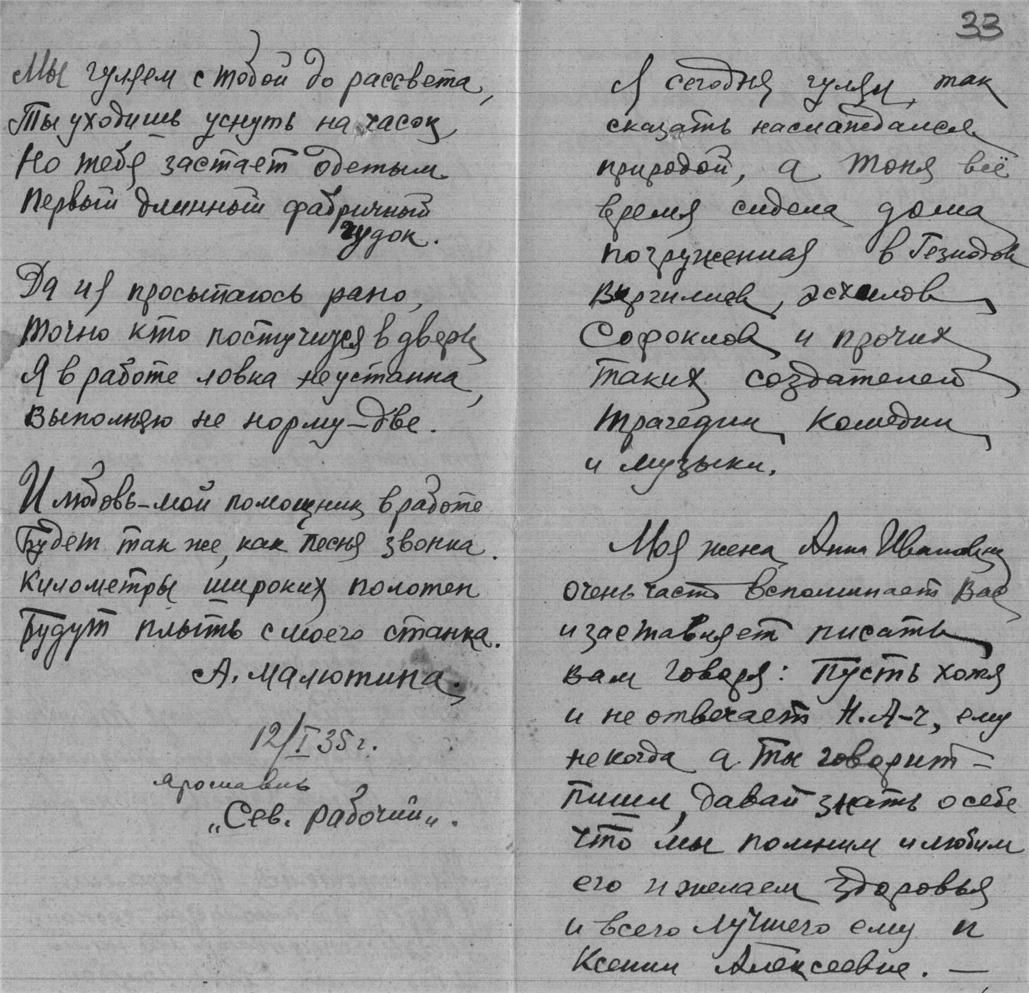 Мы гуляем с тобой до рассвета,
Ты уходишь уснуть на часок,
Но тебя застает одетым
Первый длинный фабричный
гудок.
Да и я просыпаюсь рано,
Точно кто постучится в дверь,
Я в работе ловка неустанна,
Выполняю не норму – две.
И любовь – мой помощник в работе
Будет так же, как песня звонка.
Километры широких полотен
Будут плыть с моего станка.
А. Малютина
12/I 35 г.
Ярославль
„Сев. рабочий".
33
Я сегодня гулял, так
сказать наслаждался
природой, а Тоня всё
время сидела дома
погруженная в Гезиодов
Виргилиев, Эсхилов,
Софоклов и прочих
таких создателей
трагедии, комедии,
и музыки.
Моя жена, Анна Ивановна
очень часто вспоминает Вас
и заставляет писать
вам говоря: Пусть хотя
и не отвечает Н.А-ч, ему
некогда а ты говорит –
пиши, давай знать о себе
что мы помним и любим
его и желаем здоровья
и всего лучшего ему и
Ксении Алексеевне. —